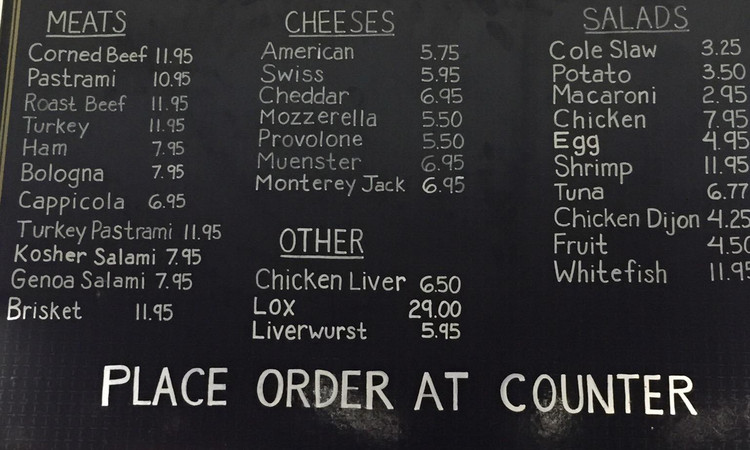 MEATS
Corned Beef 11.95
Pastrami 10.95
Roast Beef 11.95
Turkey 11.95
Ham 7.95
Bologna 7.95
Cappicola 6.95
Turkey Pastrami 11.95
Kosher Salami 7.95
Genoa Salami 7.95
Brisket 11.95
CHEESES
American 5.75
Swiss 5.95
Cheddar 6.95
Mozzerella 5.50
Provolone 5.50
Muenster 6.95
Monterey Jack 6.95
OTHER
Chicken Liver 6.50
Lox 29.00
Liverwurst 5.95
SALADS
Cole Slaw 3.25
Potato 3.50
Macaroni 2.95
Chicken 7.95
Egg 4.95
Shrimp 11.95
Tuna 6.77
Chicken Dijon 4.25
Fruit 4.50
Whitefish 11.95
PLACE ORDER AT COUNTER